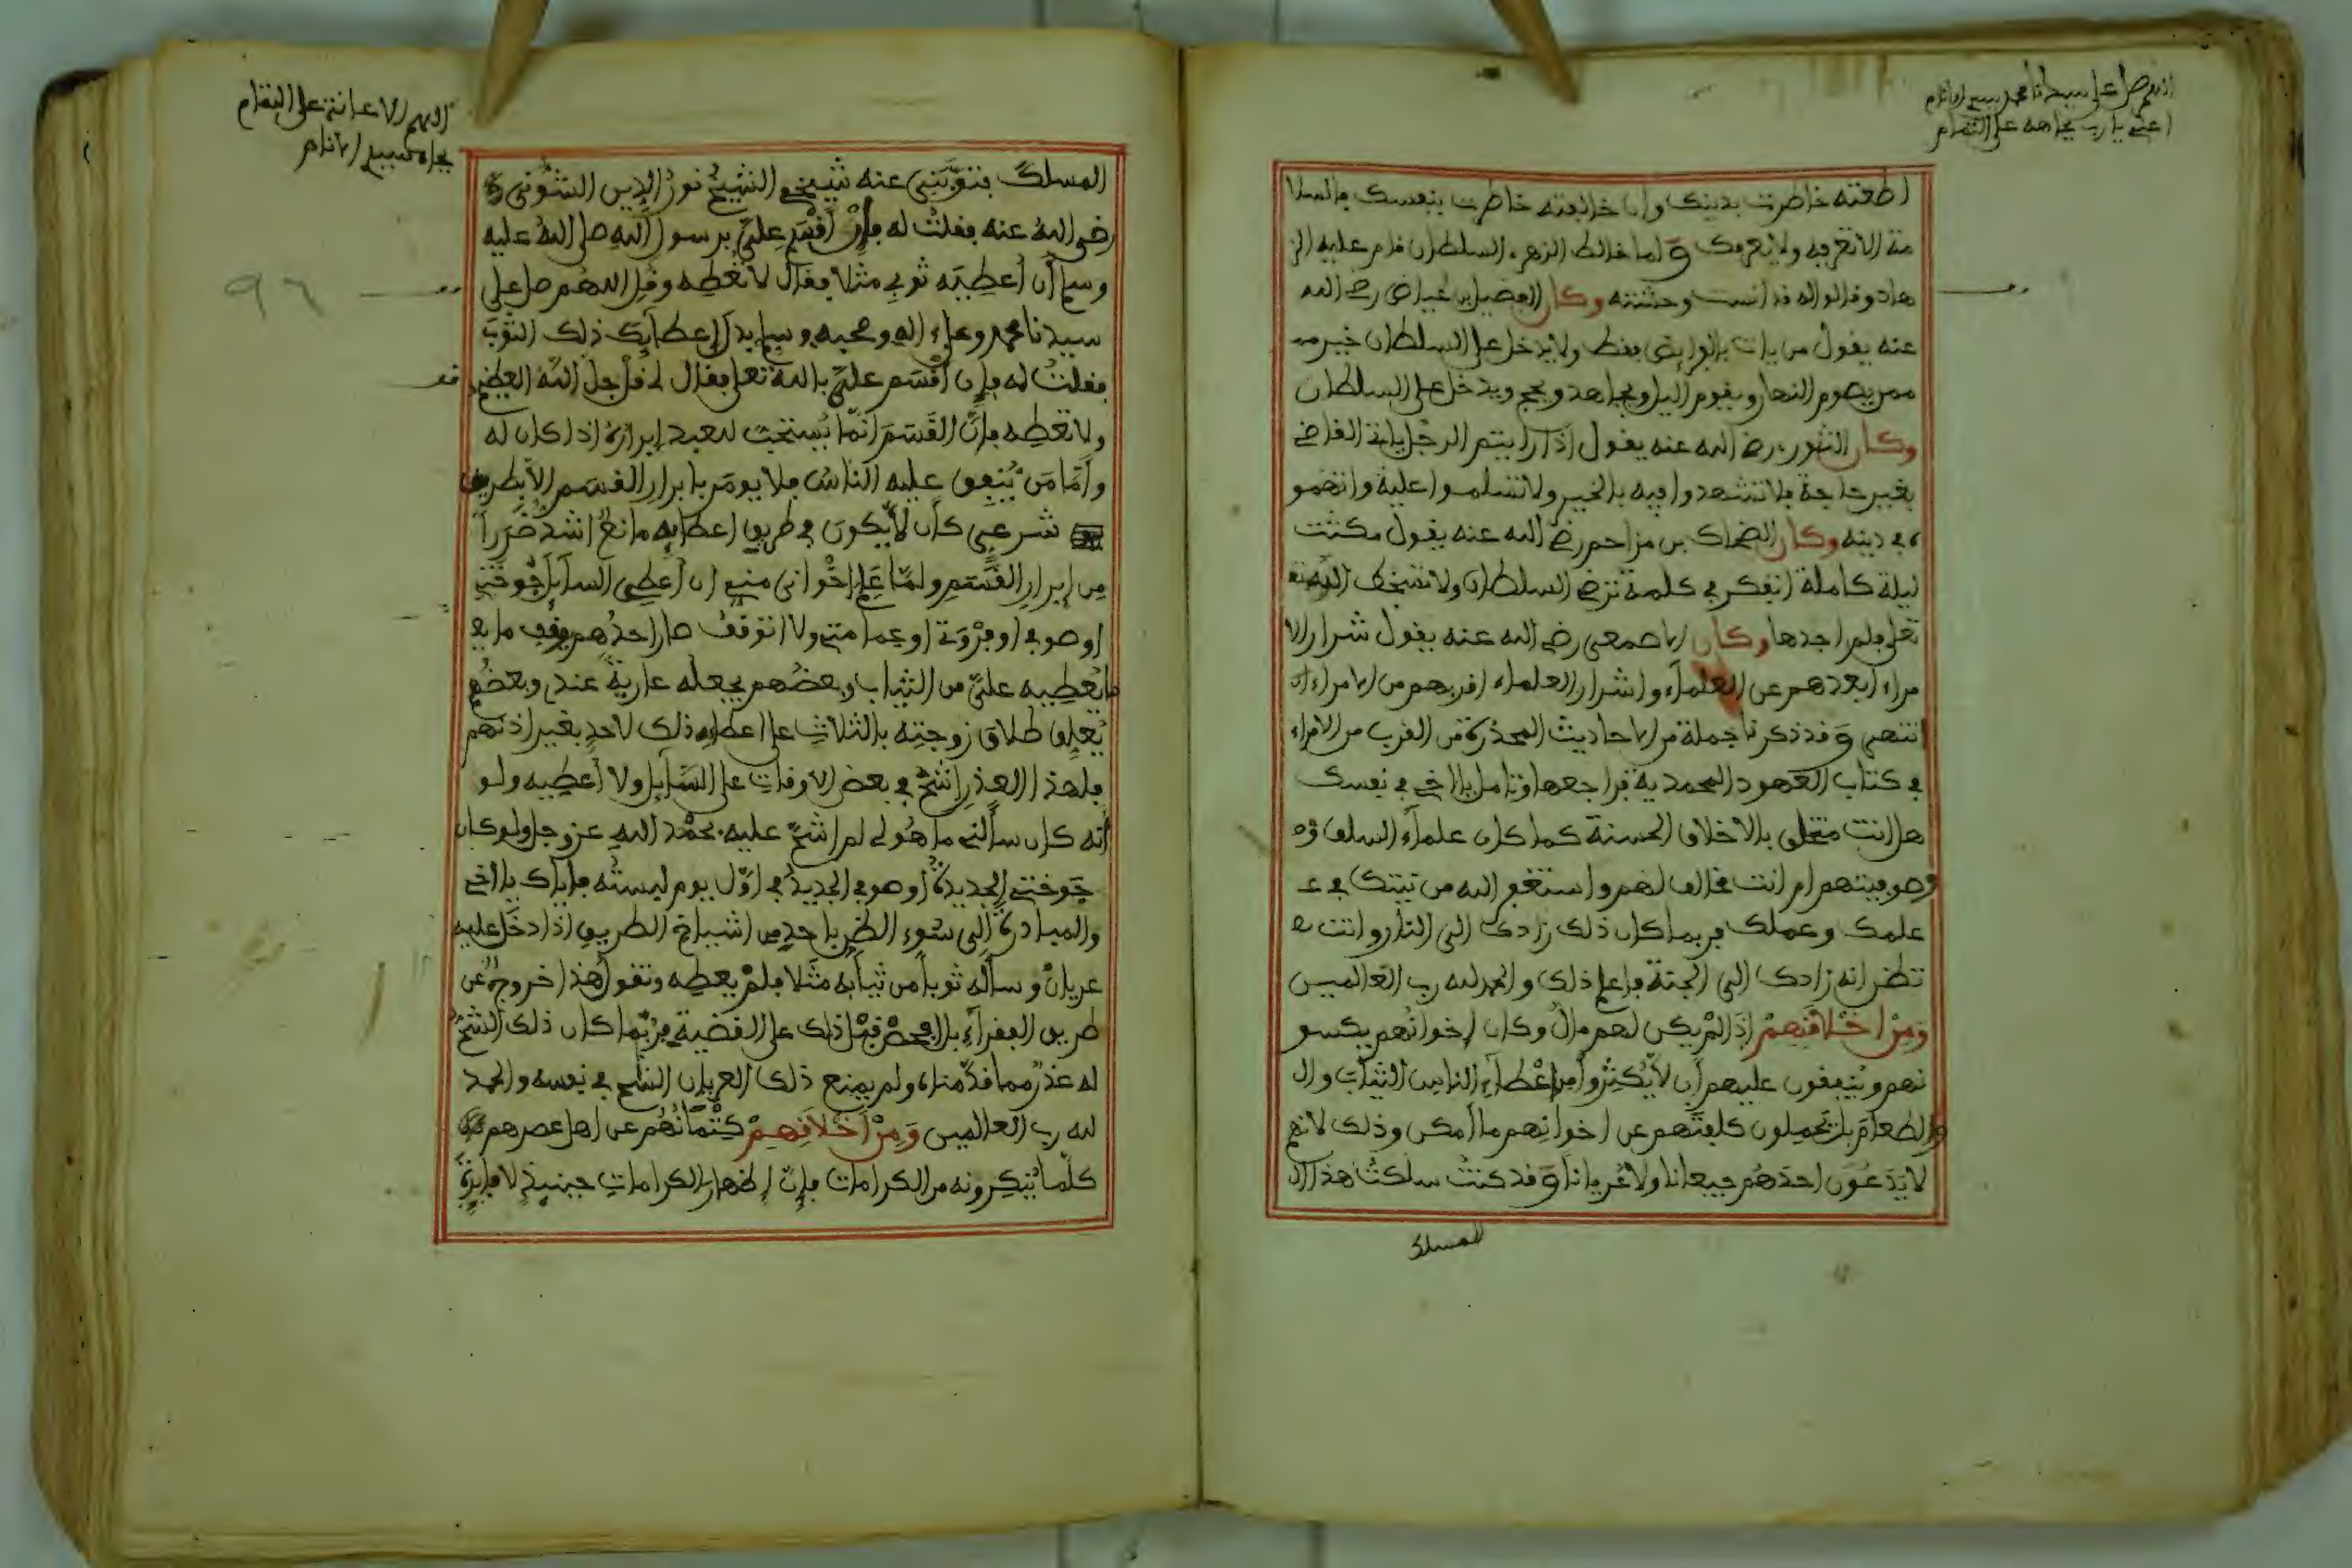 اللهم صل على سيدنا محمد سيد الانام
اعني يا رب بجاهه على التمام
اطعته خاطرت بدينك وان خالفته خاطرت بنفسك فالسلا
مة الا تعرفه ولا يعرفك ولما خالط الزهري السلطان قام عليه الز
هاد وقالوا له قد انست وحشته وكان الفضيل بن عياض رضي الله
عنه يقول من يات بالفرايض فقط ولا يدخل على السلطان خير من
ممن يصوم النهار ويقوم اليل ويجاهد ويحج ويدخل على السلطان
وكان الثوري رضي الله عنه يقول اذا رايتم الرجل ياتي القاضي
بغير حاجة فلا تشهدوا فيه بالخير ولا تسلموا عليه واتهمو
ه في دينه وكان الضحاك بن مزاحم رضي الله عنه يقول مكثت
ليلة كاملة اتفكر في كلمة ترضي السلطان ولا تسخط الله تعا
تعلى فلم اجدها وكان الاصمعي رضي الله عنه يقول شرار الا
مراء ابعدهم عن العلماء واشرار العلماء اقربهم من الامراء
انتهى وقد ذكرنا جملة من الاحاديث المحذرة من القرب من الامراء
في كتاب العهود المحمدية فراجعها وتامل يا اخي في نفسك
هل انت متخلق بالاخلاق الحسنة كما كان علماء السلف
وصوفيتهم ام انت مخالف لهم واستغفر الله من نيتك في ع
علمك وعملك فربما كان ذلك زادك الى النار وانت
تظن انه زادك الى الجنة فاعلم ذلك والحمد لله رب العالمين
وَمِنْ اخْلَاقِهِمْ اذا لم يكن لهم مال وكان اخوانهم يكسو
نهم وينفقون عليهم ان لا يكثروا من اعطاء الناس الثياب وال
والطعام بل يحملون كلفتهم عن اخوانهم ما امكن وذلك لانهم
لا يدعون احدهم جيعانا ولا عريانا وقد كنت سلكت هذا ال
المسلك
اللهم الاعانة على التمام
بجاه سيد الانام
٩٦
المسلك فتوبني عنه شيخي الشيخ نور الدين الشوني
رضي الله عنه فقلت له فان اقسم علي برسول الله صلى الله عليه
وسلم ان اعطيه ثوبي مثلا فقال لا تعطه وقل اللهم صل على
سيدنا محمد وعلى اله وصحبه وسلم بدل اعطايك ذلك الثوب
فقلت له فان اقسم علي بالله تعلى فقال لي قل جل الله العظيم
ولا تعطه فان القسم انما يستحب للعبد ابراره اذا كان له
واما من ينفق عليه الناس فلا يومر بابرار القسم الا بطريق
شرعي كان لا يكون في طريق اعطايه مانع اشد ضررا
من ابرار القسم ولما علم اخواني مني ان اعطي السايل جوختي
او صوفي او فروتي او عمامتي ولا اتوقف صار احدهم يوقف ما يع
ما يعطيه علي من الثياب وبعضهم يجعله عارية عندي وبعضهم
يعلق طلاق زوجته بالثلاث على اعطايه ذلك لاحد بغير اذنهم
فلهذا العذر اشح في بعض الاوقات على السايل ولا اعطيه ولو
انه كان سالني ما هو لي لم اشح عليه بحمد الله عز وجل ولو كان
جوختي الجديدة او صوفي الجديد في اول يوم لبسته فاياك يا اخي
والمبادرة الى سوء الظن باحد من اشياخ الطريق اذا دخل عليه
عريان وساله ثوبا من ثيابه مثلا فلم يعطه وتقول هذا خروج عن
طريق الفقراء بل افحص قبل ذلك على القضية فربما كان ذلك الشيخ
له عذر مما قدمناه ولم يمنع ذلك العريان لشح في نفسه والحمد
لله رب العالمين وَمِنْ أَخْلَاقِهِمْ كتمانهم عن اهل عصرهم
كلما ينكرونه من الكرامات فان اظهار الكرامات حينيذ لا فايدة